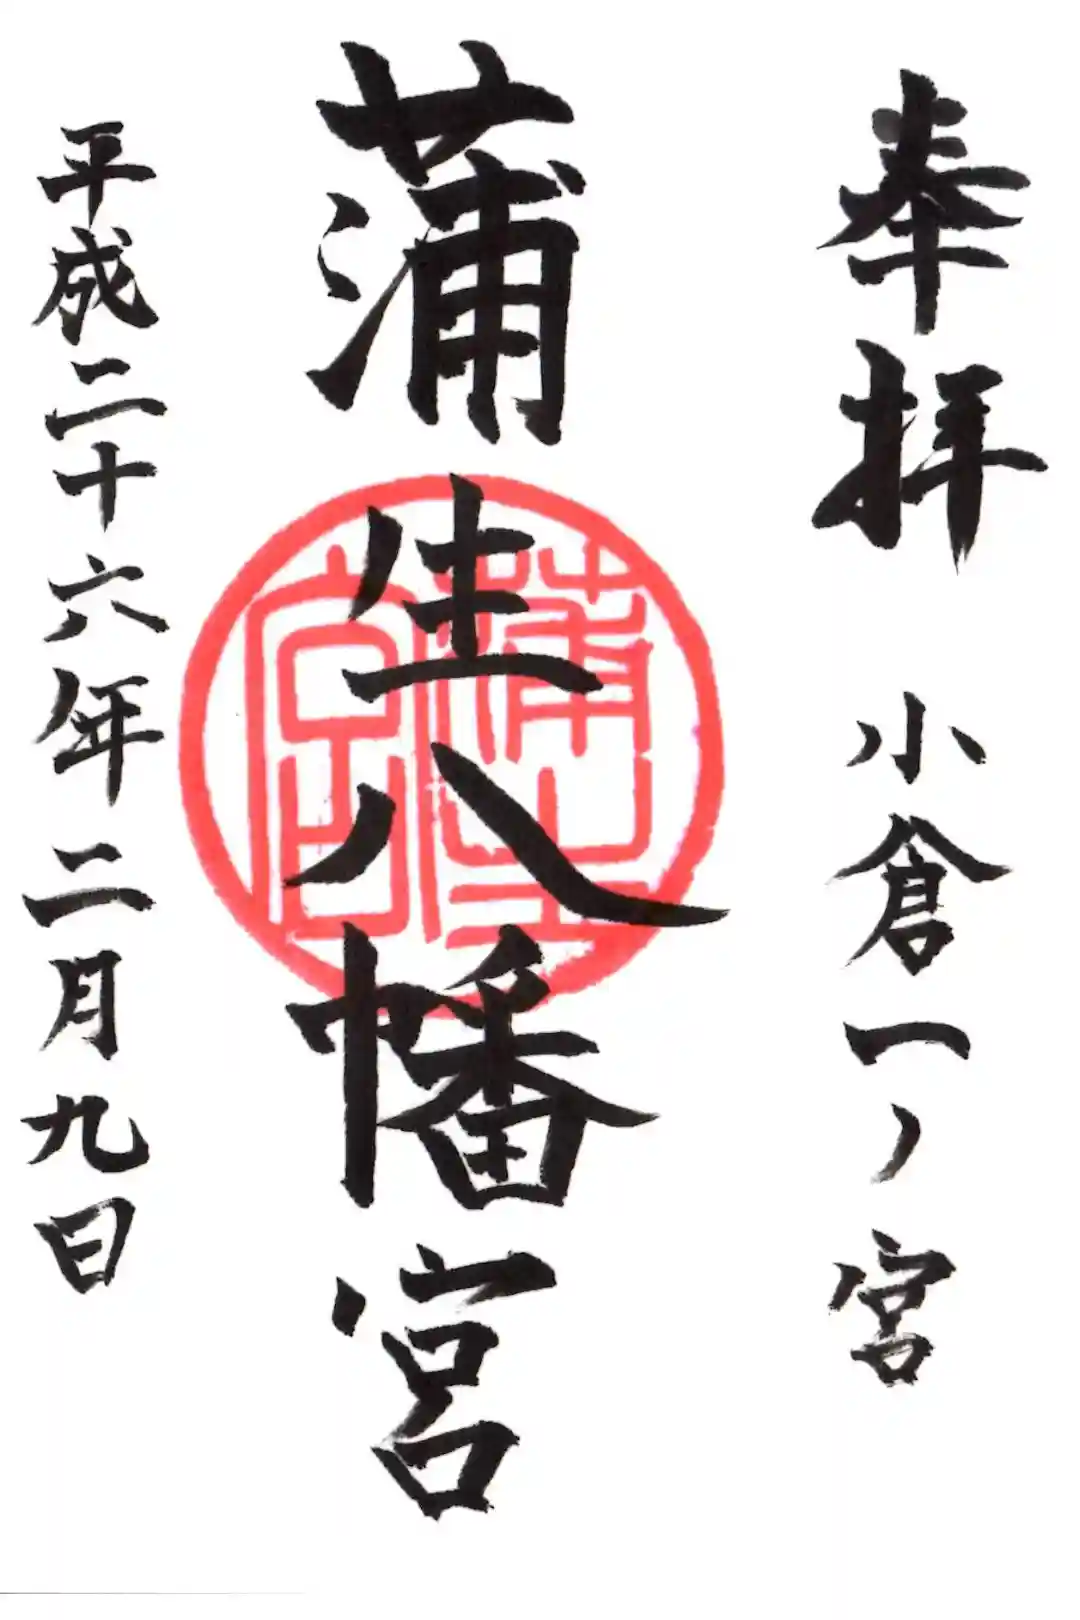 奉拝 小倉一ノ宮
蒲生八幡宮
平成二十六年二月九日
蒲生
宮印